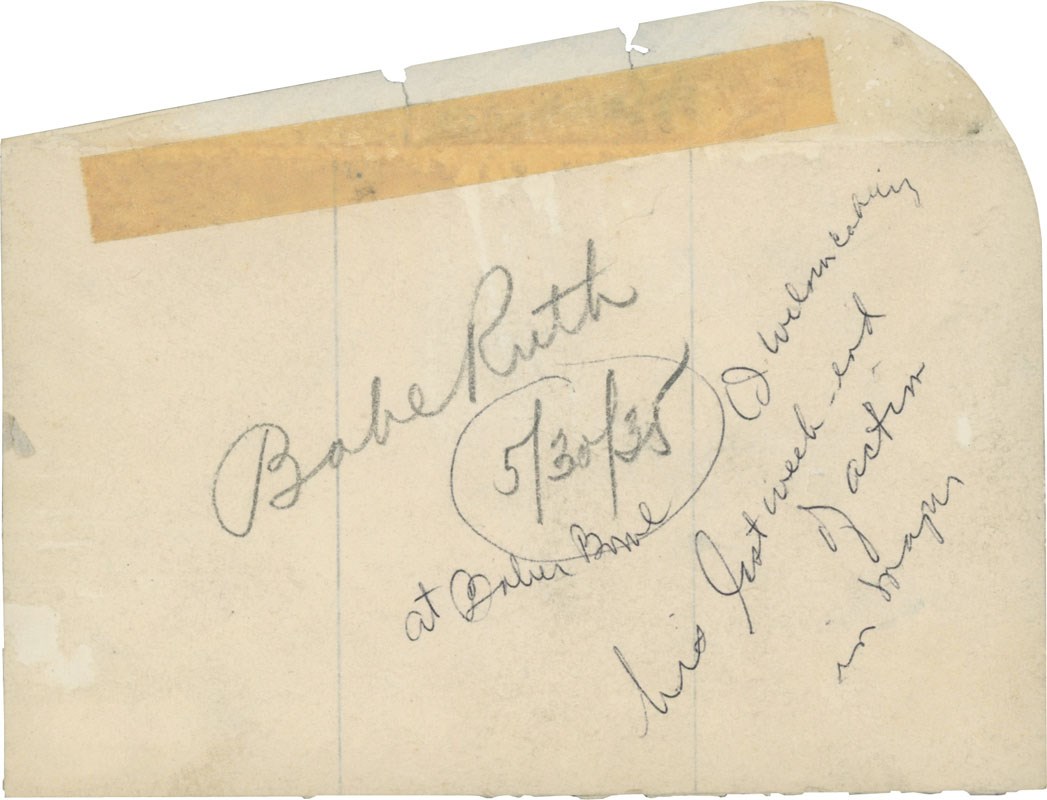 Babe Ruth
5/30/35
at Baker Bowl
his last week-end
of action
in majors